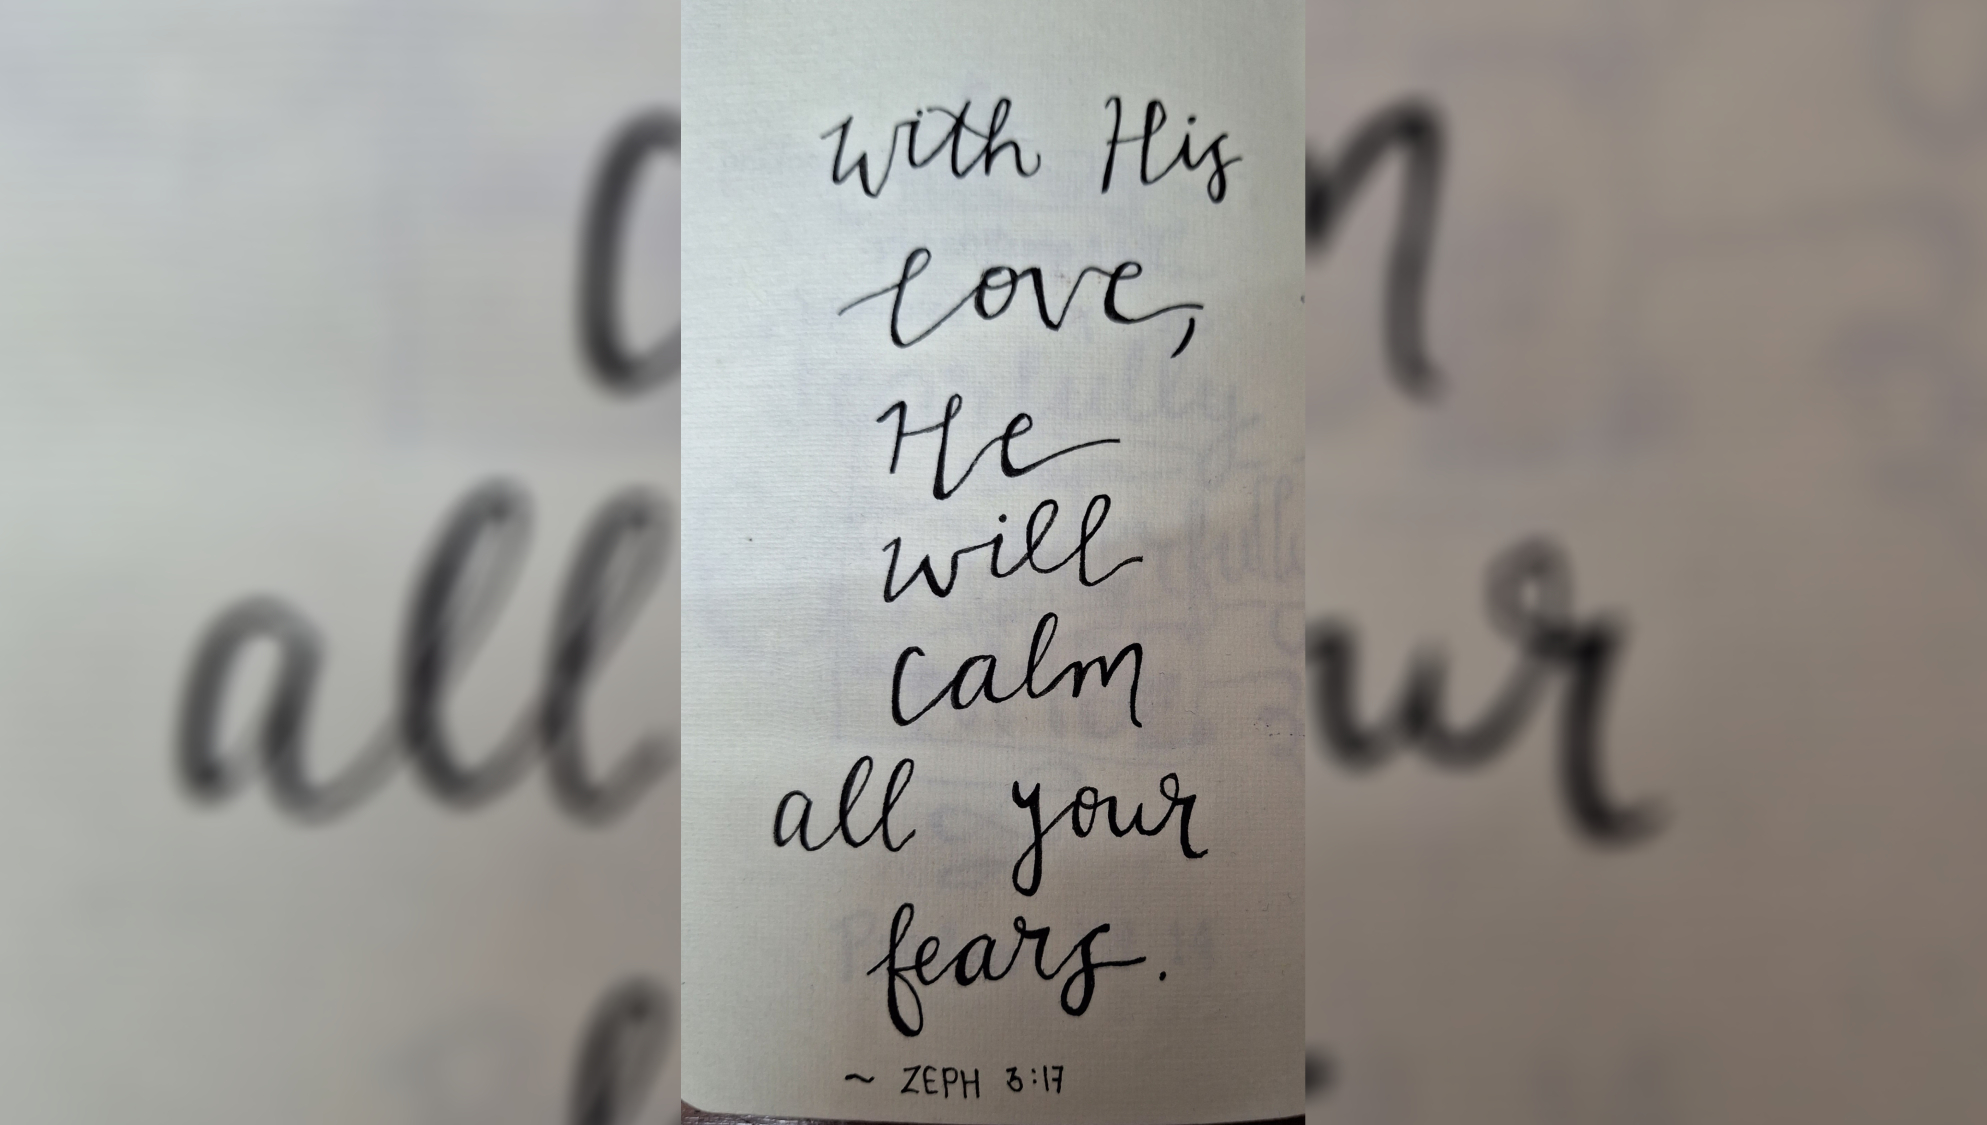 with His
love,
He
will
calm
all your
fears.
~ ZEPH 3:17